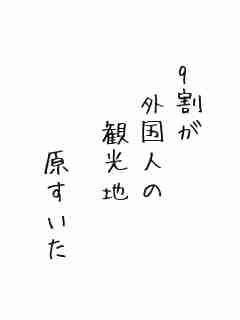 9割が
外国人の
観光地
原すいた